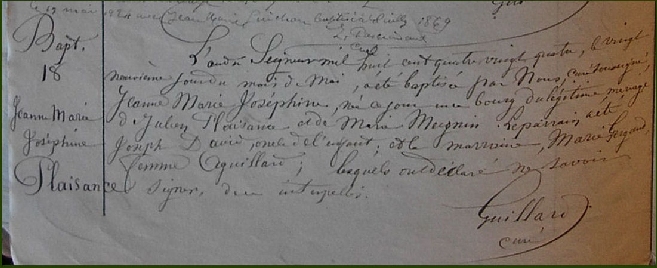 le 19 mai 1924 avec Jean Marie baptisé à 1869
curé
Bapt.
18
Jeanne Marie
Joséphine
Plaisance
L'an du Seigneur mil huit cent quatre vingt quatre, le vingt
neuvième jour du mois de Mai, a été baptisée par Nous, Curé soussigné,
Jeanne Marie Joséphine, née ce jour, au bourg du légitime mariage
de Julien Plaisance et de Marie Meignin. Le parrain a été
Joseph David, oncle de l'enfant, et la marraine, Marie
femme Aguillard; lesquels ont déclaré ne savoir
signer, de ce interpellés.
Guillard
curé